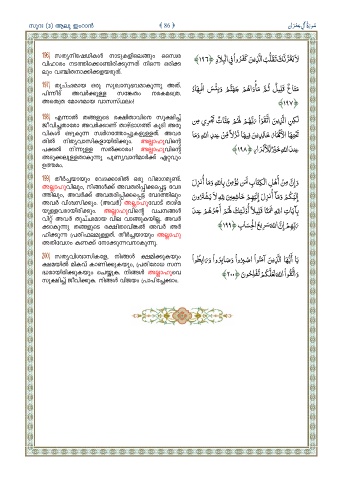 സൂറ (3) ആലു ഇംറാൻ
﴾ 86 ﴿
سورة آل عمران
196) സത്യനിഷേധികൾ നാടുകളിലെങ്ങും സൈര
വിഹാരം നടത്തിക്കൊണ്ടിരിക്കുന്നത് നിന്നെ ഒരിക്ക
ലും വഞ്ചിതനാക്കിക്കളയരുത്.
لَا يَغُرَّنَّكَ تَقَلُّبُ الَّذِينَ كَفَرُوا فِي الْبِلَادِ ﴿١٩٦﴾
197) തുച്ഛമായ ഒരു സുഖാനുഭവമാകുന്നു അത്.
പിന്നീട് അവർക്കുള്ള സങ്കേതം നരകമത്രെ.
അതെത്ര മോശമായ വാസസ്ഥലം!
مَتَاعٌ قَلِيلٌ ثُمَّ مَأْوَاهُمْ جَهَنَّمُ وَبِئْسَ الْمِهَادُ
﴿١٩٧﴾
198) എന്നാൽ തങ്ങളുടെ രക്ഷിതാവിനെ സൂക്ഷിച്ച്
ജീവിച്ചതാരോ അവർക്കാണ് താഴ്ഭാഗത്ത് കൂടി അരു
വികൾ ഒഴുകുന്ന സ്വർഗത്തോപ്പുകളുള്ളത്. അവര
തിൽ നിത്യവാസികളായിരിക്കും. അല്ലാഹുവിന്റെ
പക്കൽ നിന്നുള്ള സൽക്കാരം! അല്ലാഹുവിന്റെ
അടുക്കലുള്ളതാകുന്നു പുണ്യവാന്മാർക്ക് ഏറ്റവും
ഉത്തമം.
لَكِنِ الَّذِينَ اتَّقَوْا رَبَّهُمْ لَهُمْ جَنَّاتٌ تَجْرِي مِنْ
تَحْتِهَا الْأَنْهَارُ خَالِدِينَ فِيهَا نُزُلًا مِنْ عِنْدِ اللَّهِ وَمَا
عِنْدَ اللَّهِ خَيْرٌ لِلْأَبْرَارِ ﴿١٩٨﴾
199) തീർച്ചയായും വേദക്കാരിൽ ഒരു വിഭാഗമുണ്ട്.
അല്ലാഹുവിലും, നിങ്ങൾക്ക് അവതരിപ്പിക്കപ്പെട്ട വേദ
ത്തിലും, അവർക്ക് അവതരിപ്പിക്കപ്പെട്ട വേദത്തിലും
അവർ വിശ്വസിക്കും. (അവർ) അല്ലാഹുവോട് താഴ്മ
യുള്ളവരായിരിക്കും. അല്ലാഹുവിന്റെ വചനങ്ങൾ
വിറ്റ് അവർ തുച്ഛമായ വില വാങ്ങുകയില്ല. അവർ
ക്കാകുന്നു തങ്ങളുടെ രക്ഷിതാവിങ്കൽ അവർ അർ
ഹിക്കുന്ന പ്രതിഫലമുള്ളത്. തീർച്ചയായും അല്ലാഹു
അതിവേഗം കണക്ക് നോക്കുന്നവനാകുന്നു.
وَإِنَّ مِنْ أَهْلِ الْكِتَابِ لَمَنْ يُؤْمِنُ بِاللَّهِ وَمَا أُنْزِلَ
إِلَيْكُمْ وَمَا أُنْزِلَ إِلَيْهِمْ خَاشِعِينَ لِلَّهِ لَا يَشْتَرُونَ
بِآيَاتِ اللَّهِ ثَمَنًا قَلِيلًا أُولَئِكَ لَهُمْ أَجْرُهُمْ عِنْدَ
رَبِّهِمْ إِنَّ اللَّهَ سَرِيعُ الْحِسَابِ ﴿١٩٩﴾
200) സത്യവിശ്വാസികളേ, നിങ്ങൾ ക്ഷമിക്കുകയും
ക്ഷമയിൽ മികവ് കാണിക്കുകയും, പ്രതിരോധ സന്ന
ദ്ധരായിരിക്കുകയും ചെയ്യുക. നിങ്ങൾ അല്ലാഹുവെ
സൂക്ഷിച്ച് ജീവിക്കുക. നിങ്ങൾ വിജയം പ്രാപിച്ചേക്കാം.
يَا أَيُّهَا الَّذِينَ آمَنُوا اصْبِرُوا وَصَابِرُوا وَرَابِطُوا
وَاتَّقُوا اللَّهَ لَعَلَّكُمْ تُفْلِحُونَ ﴿٢٠٠﴾